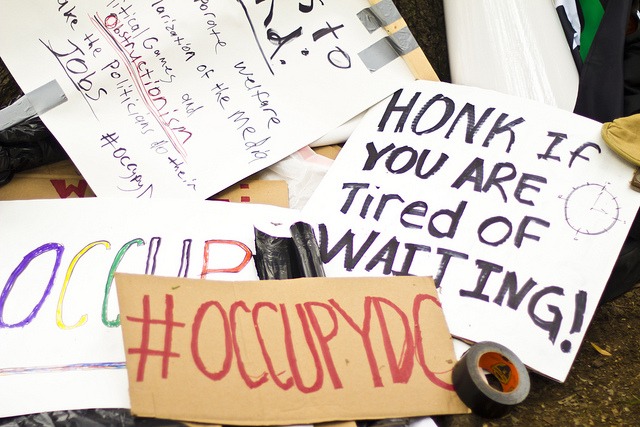 s to
d.
porate welfare
larization of the Media
itical Games and
Obstructionism
ake the Politicians do their
Jobs
#OccupyD
HONK IF
YOU ARE
Tired OF
WAITING!
OCCUP
#OCCUPYDC